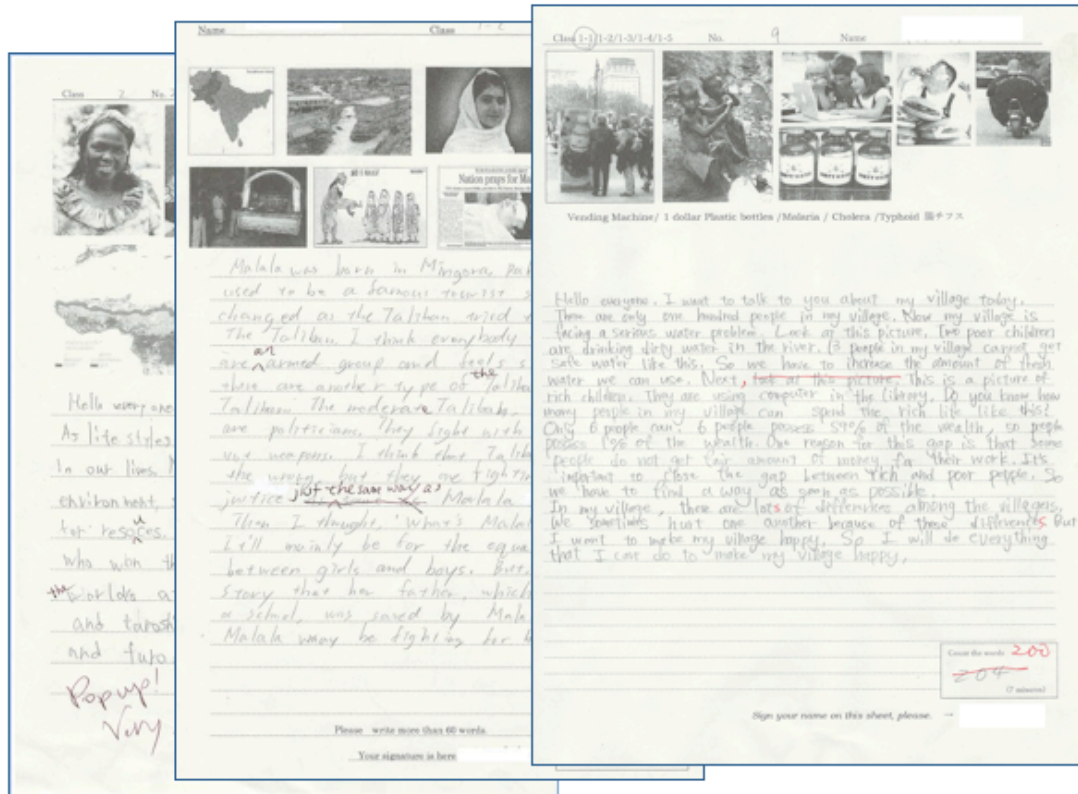 Class 2 No. 2
Hello everyone
As life styles
In our lives.
environment,
for resouces.
who won th
the worlds a
and
and
Pop up!
Very
Name Class 1-2
Nation prays for Ma
Malala was born in Mingora, Pak
used to be a famous tourist s
changed as the Taliban tried t
The Taliban. I think everybody
are an armed group and feels s
there are another type of the Talib
Taliban. The moderate Taliban.
are politicians. They fight with
not weapons. I think that Talib
the wrong, but they are fightin
justice just the same way as Malala
Then I thought, "What's Malal
It'll mainly be for the equa
between girls and boys. But,
story that her father, which
a school, was saved by Mala
Malala may be fighting her
Please write more than 60 words.
Your signature is here
Class 1-1/1-2/1-3/1-4/1-5 No. 9 Name
Vending Machine/ 1 dollar Plastic bottles /Malaria / Cholera /Typhoid 腸チフス
Hello everyone. I want to talk to you about my village today.
There are only one hundred people in my village. Now my village is
facing a serious water problem. Look at this picture. Two poor children
are drinking dirty water in the river. 13 people in my village cannot get
safe water like this. So we have to increase the amount of fresh
water we can use. Next, look at this picture. This is a picture of
rich children. They are using computer in the library. Do you know how
many people in my village can spend the rich life like this?
Only 6 people can. 6 people possess 59% of the wealth, 20 people
possess 1% of the wealth. One reason for this gap is that some
people do not get fair amount of money for their work. It's
important to close the gap between rich and poor people. So
we have to find a way as soon as possible.
In my village, there are lots of differences among the villagers.
We sometimes hurt one another because of those differences But
I want to make my village happy. So I will do everything
that I can do to make my village happy.
Count the words 200
204
(7 minutes)
Sign your name on this sheet, please. →